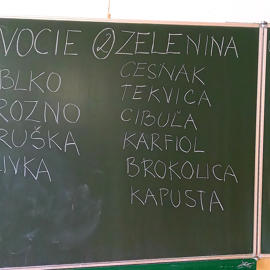 VOCIE ② ZELENINA
BLKO
ROZNO
RUŠKA
LIVKA
CESNAK
TEKVICA
CIBUĽA
KARFIOL
BROKOLICA
KAPUSTA